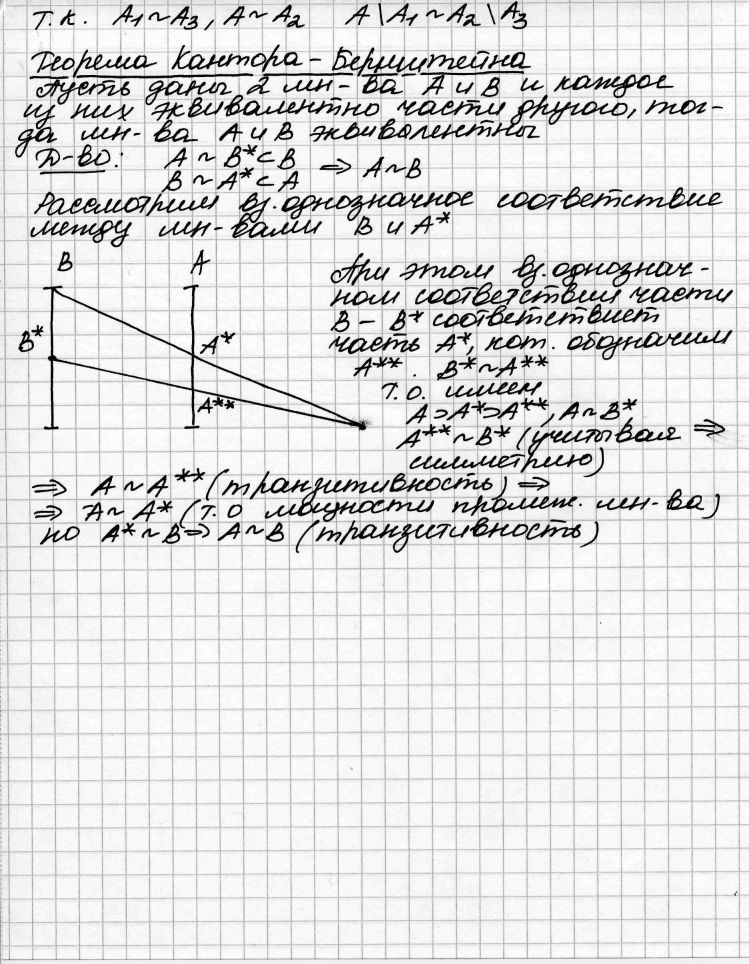 Т.к. A₁~A₃, A~A₂ A\A₁~A₂\A₃
Теорема Кантора-Бернштейна
Пусть даны 2 мн-ва A и B и каждое
из них эквивалентно части другого, тог-
да мн-ва A и B эквивалентны
Д-во: A~B*⊂B
B~A*⊂A ⇒ A~B
Рассмотрим вз.однозначное соответствие
между мн-вами B и A*
B A
B*
A*
A**
При этом вз.однознач-
ном соответствии части
B - B* соответствует
часть A*, кот. обозначим
A**. B*~A**
Т.О. имеем
A⊃A*⊃A**, A~B*,
A**~B* (учитывая ⇒
симметрию)
⇒ A~A** (транзитивность) ⇒
⇒ A~A* (Т.О мощности промеж. мн-ва)
но A*~B ⇒ A~B (транзитивность)